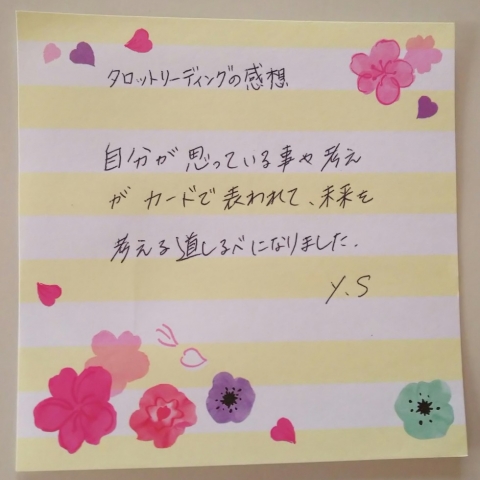 タロットリーディングの感想
自分が思っている事や考え
がカードで表われて、未来を
考える道しるべになりました.
Y.S